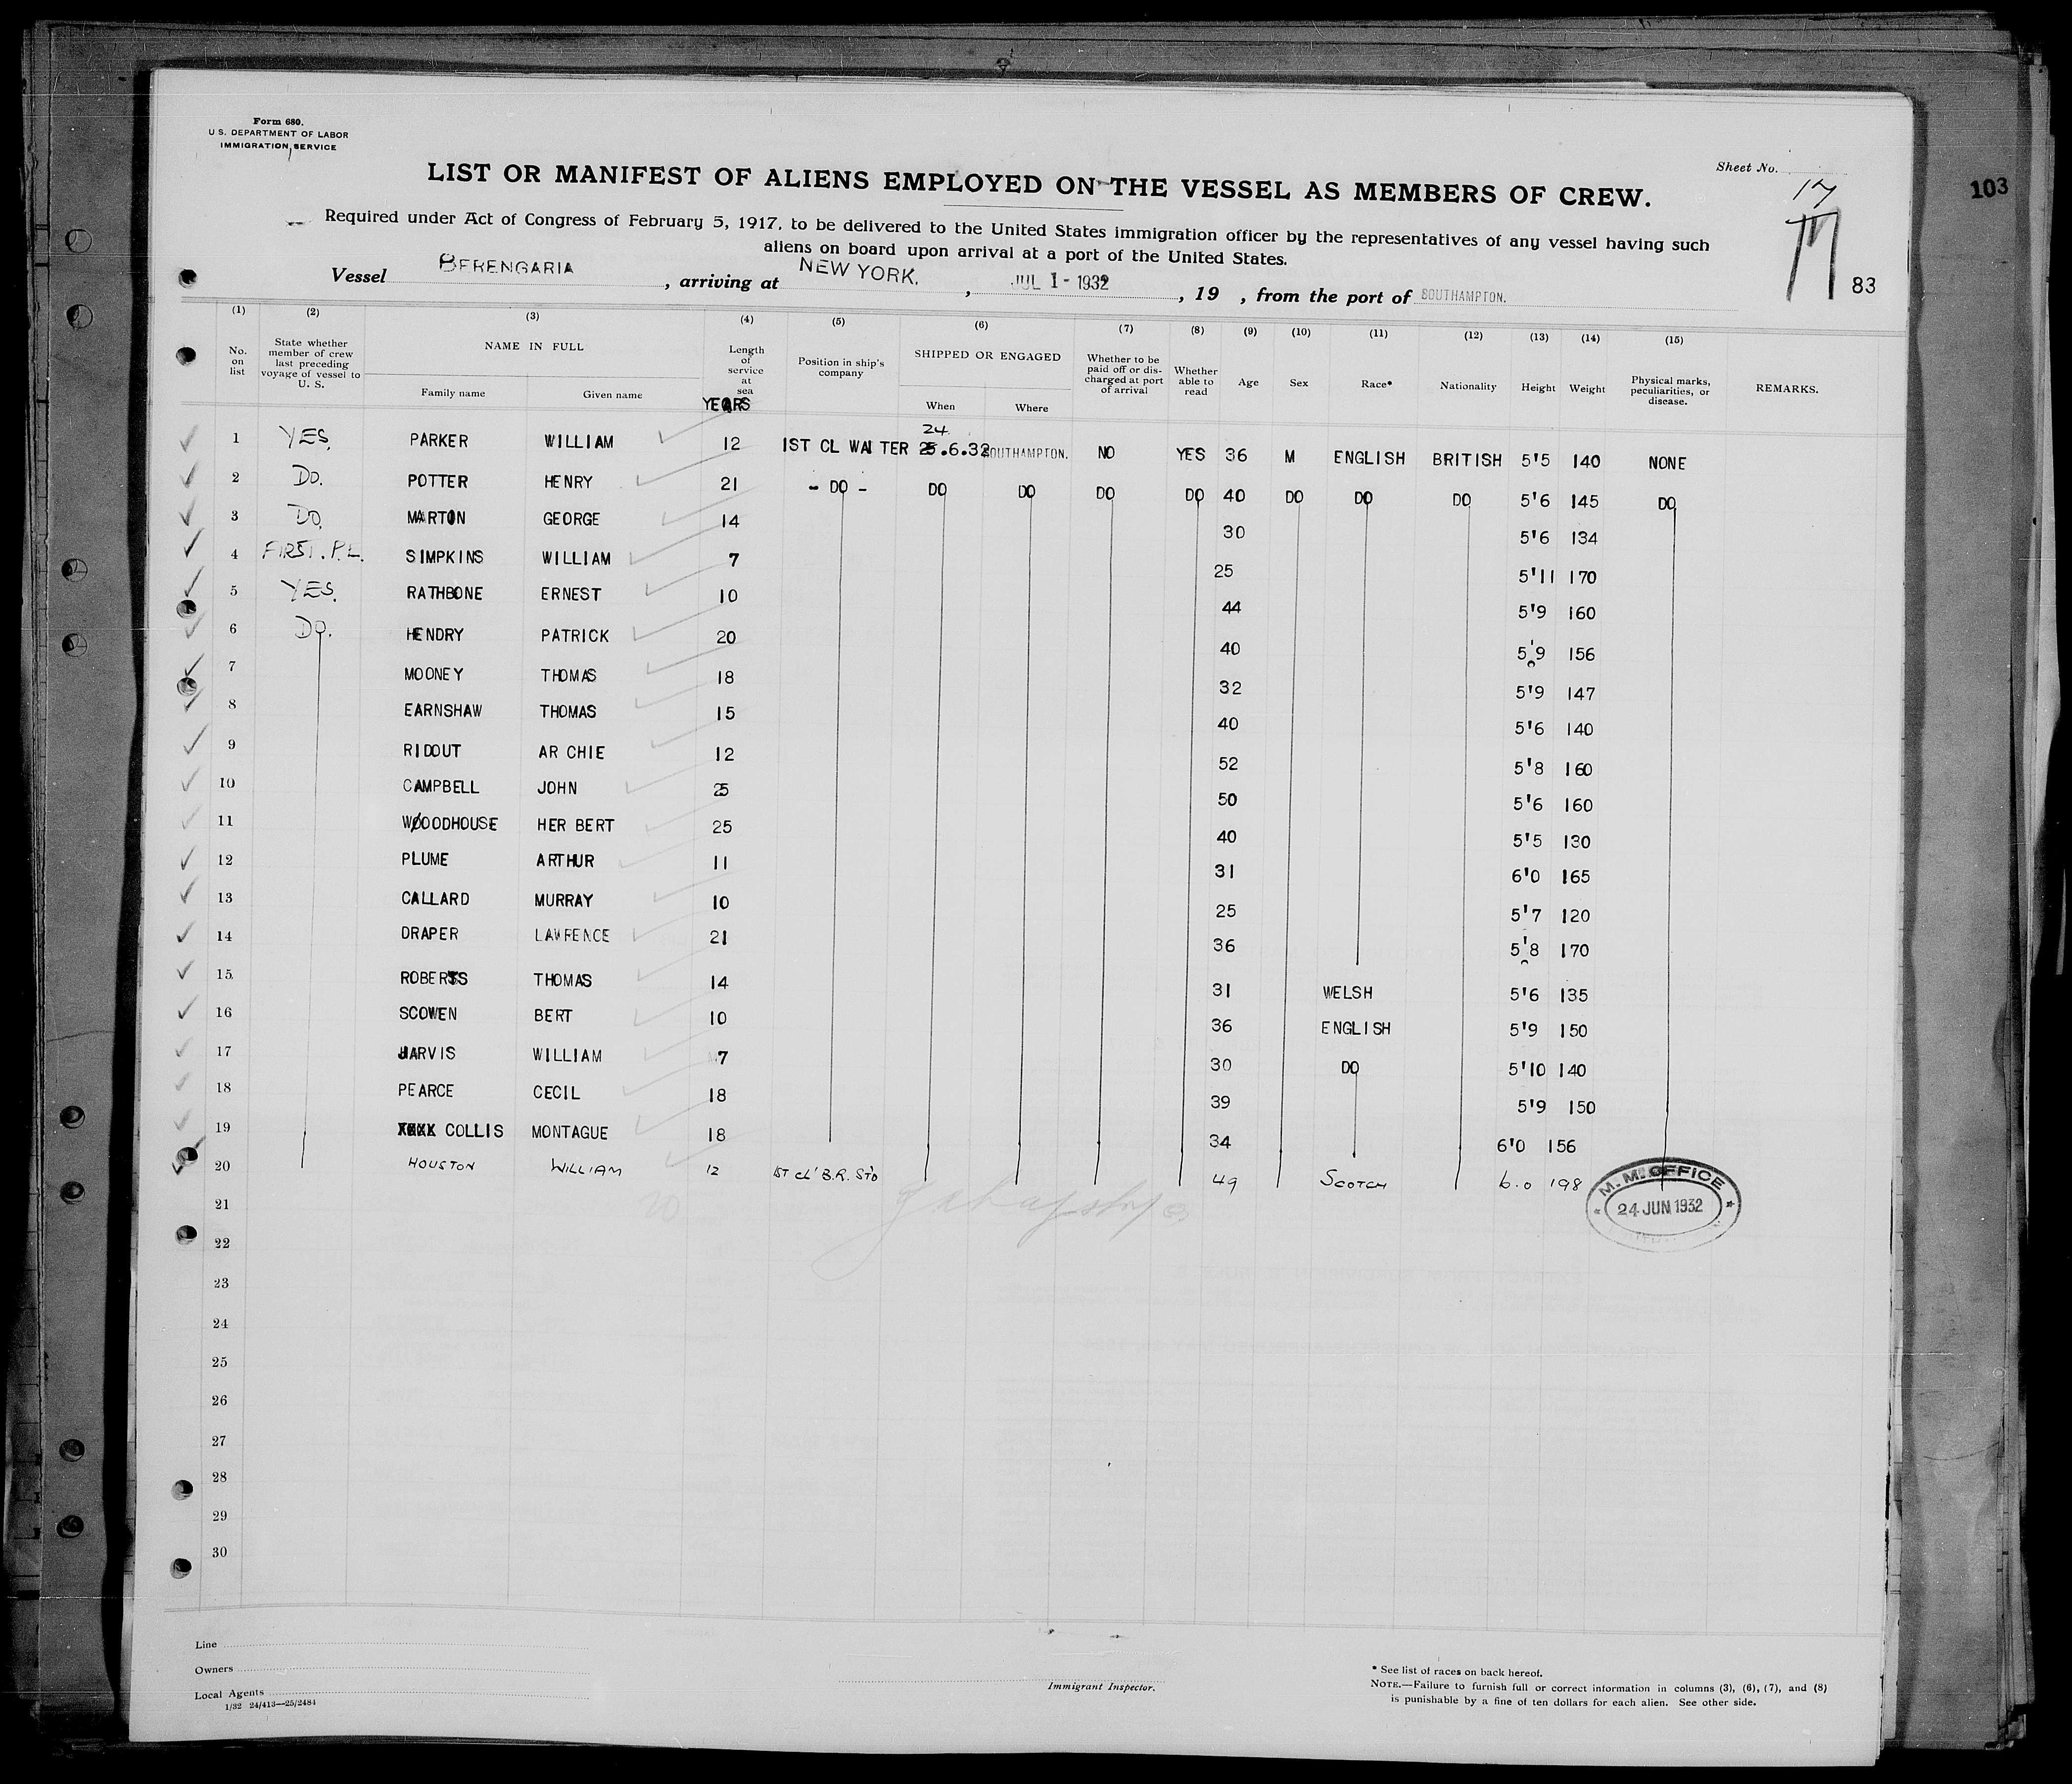 Form 680.
U.S. DEPARTMENT OF LABOR
IMMIGRATION SERVICE
Sheet No.
17
103
LIST OR MANIFEST OF ALIENS EMPLOYED ON THE VESSEL AS MEMBERS OF CREW.
Required under Act of Congress of February 5, 1917, to be delivered to the United States immigration officer by the representatives of any vessel having such
aliens on board upon arrival at a port of the United States.
83
Vessel BERENGARIA, arriving at NEW YORK., JUL 1 - 1932, 19 , from the port of SOUTHAMPTON.
(1) (2) (3) (4) (5) (6) (7) (8) (9) (10) (11) (12) (13) (14) (15)
No. on list State whether member of crew last preceding voyage of vessel to U. S. NAME IN FULL Length of service at sea Position in ship's company SHIPPED OR ENGAGED Whether to be paid off or discharged at port of arrival Whether able to read Age Sex Race* Nationality Height Weight Physical marks, peculiarities, or disease. REMARKS.
Family name Given name YEARS When Where
24
1 YES. PARKER WILLIAM 12 1ST CL WAITER 25.6.32 SOUTHAMPTON. NO YES 36 M ENGLISH BRITISH 5'5 140 NONE
2 DO. POTTER HENRY 21 - DO - DO DO DO DO 40 DO DO DO 5'6 145 DO
3 DO. MARTON GEORGE 14 30 5'6 134
4 FIRST. P.L. SIMPKINS WILLIAM 7 25 5'11 170
5 YES. RATHBONE ERNEST 10 44 5'9 160
6 DO. HENDRY PATRICK 20 40 5'9 156
7 MOONEY THOMAS 18 32 5'9 147
8 EARNSHAW THOMAS 15 40 5'6 140
9 RIDOUT AR CHIE 12 52 5'8 160
10 CAMPBELL JOHN 25 50 5'6 160
11 WOOODHOUSE HER BERT 25 40 5'5 130
12 PLUME ARTHUR 11 31 6'0 165
13 CALLARD MURRAY 10 25 5'7 120
14 DRAPER LAWRENCE 21 36 5'8 170
15 ROBERTS THOMAS 14 31 WELSH 5'6 135
16 SCOWEN BERT 10 36 ENGLISH 5'9 150
17 JARVIS WILLIAM 7 30 DO 5'10 140
18 PEARCE CECIL 18 39 5'9 150
19 XXXX COLLIS MONTAGUE 18 34 6'0 156
20 HOUSTON WILLIAM 12 1ST CL' B.R. STD 49 SCOTCH 6.0 198
M. M. OFFICE
24 JUN 1932
21 20
22
23
24
25
26
27
28
29
30
Line
Owners
Local Agents
1/32 24/413—25/2484
Immigrant Inspector.
* See list of races on back hereof.
NOTE.—Failure to furnish full or correct information in columns (3), (6), (7), and (8)
is punishable by a fine of ten dollars for each alien. See other side.